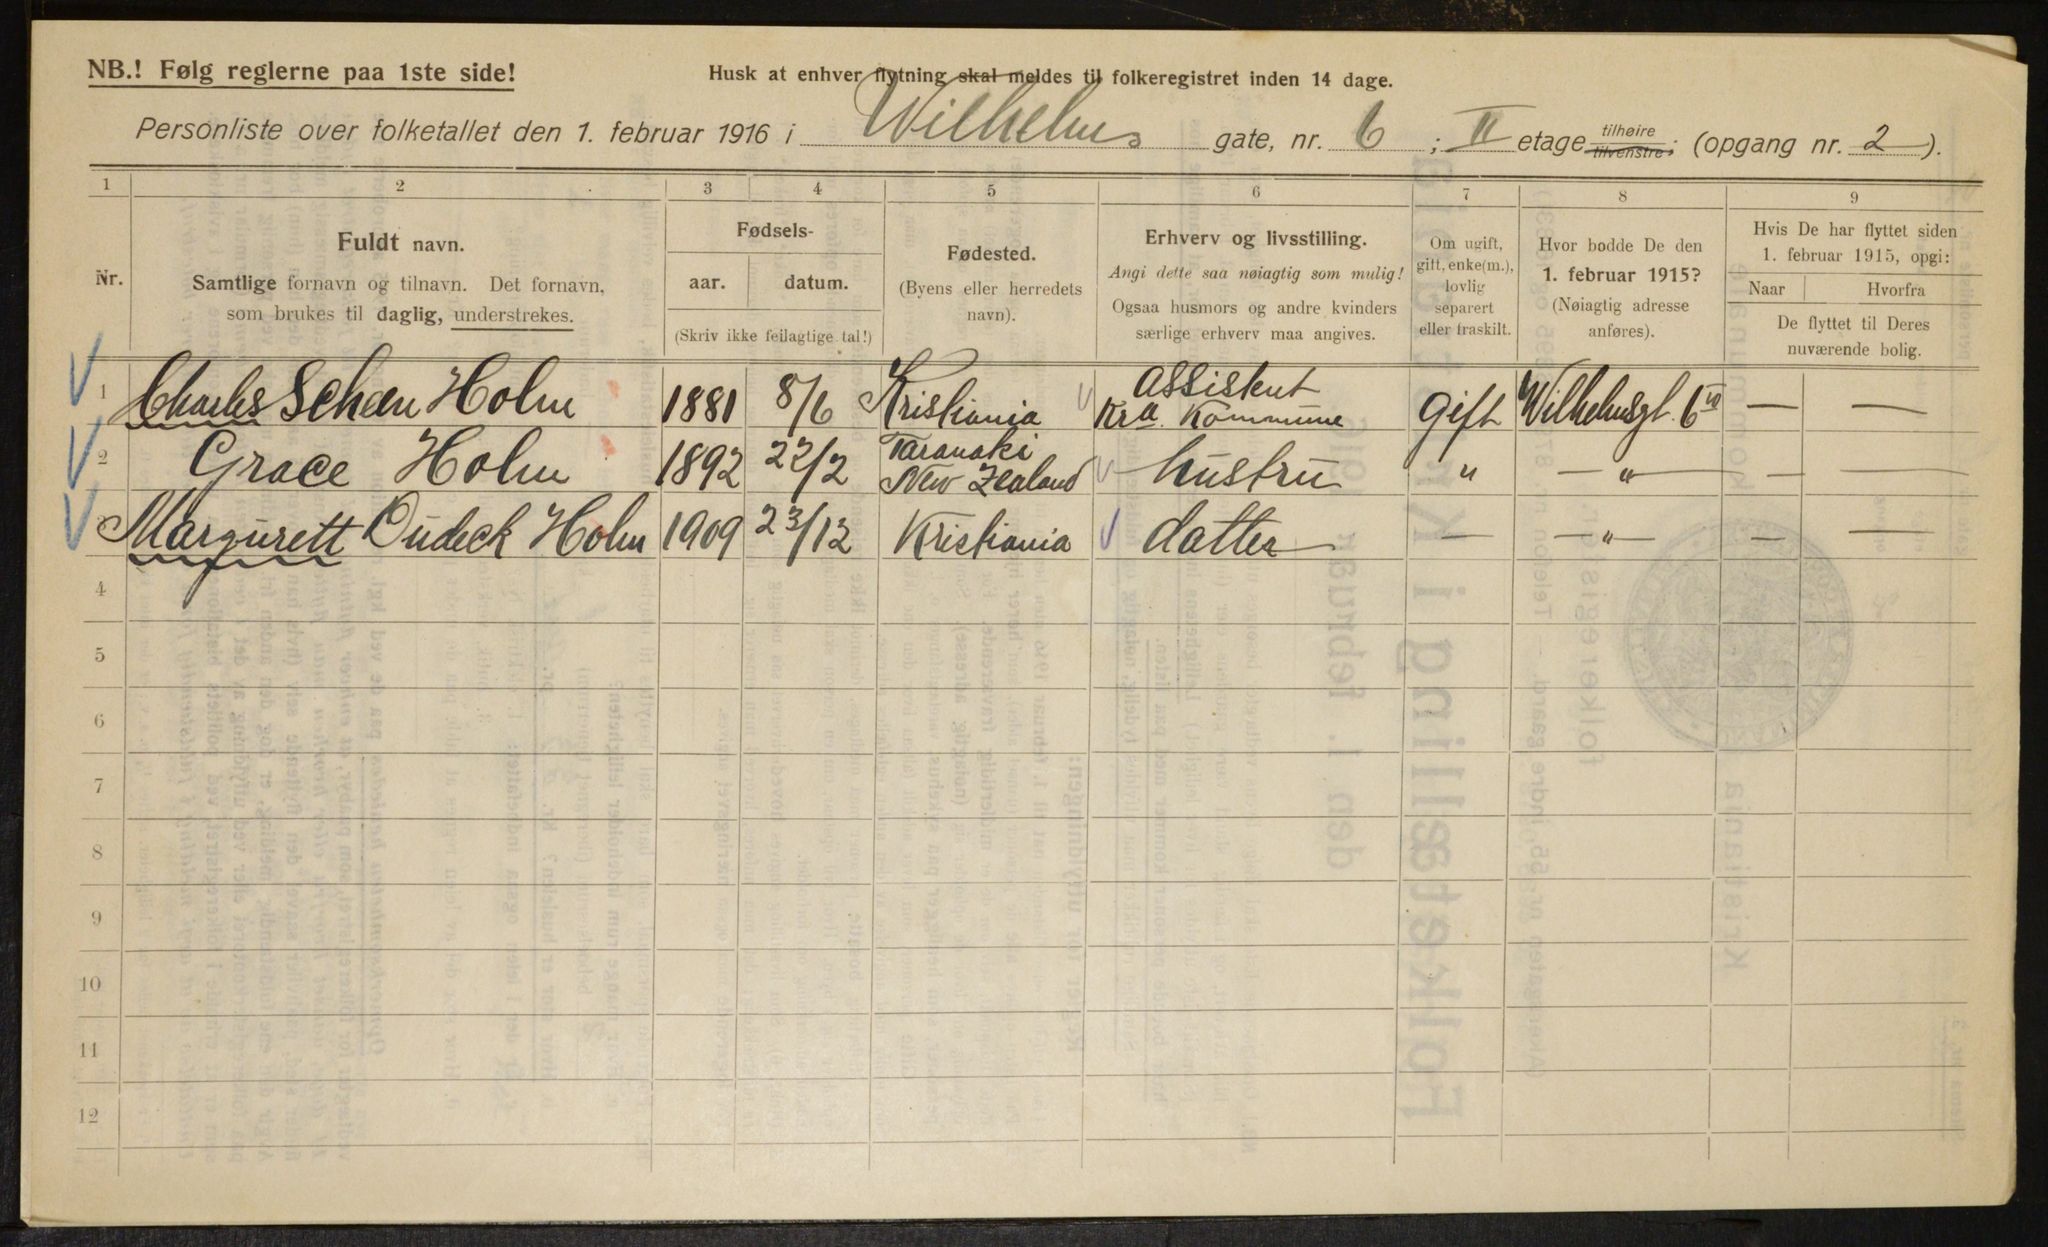 NB.! Følg reglerne paa 1ste side!
Husk at enhver flytning skal meldes til folkeregistret inden 14 dage.
Personliste over folketallet den 1. februar 1916 i Wilhelms gate, nr. 6 ; II etage tilhøire tilvenstre; (opgang nr. 2 ).
1 2 3 4 5 6 7 8 9
Nr.
Fuldt navn.
Samtlige fornavn og tilnavn. Det fornavn,
som brukes til daglig, understrekes.
Fødsels-
aar. datum.
(Skriv ikke feilagtige tal!)
Fødested.
(Byens eller herredets
navn).
Erhverv og livsstilling.
Angi dette saa nøiagtig som mulig!
Ogsaa husmors og andre kvinders
særlige erhverv maa angives.
Om ugift,
gift, enke(m.),
lovlig
separert
eller fraskilt.
Hvor bodde De den
1. februar 1915?
(Nøiagtig adresse
anføres).
Hvis De har flyttet siden
1. februar 1915, opgi:
Naar Hvorfra
De flyttet til Deres
nuværende bolig.
1 Charles Scheen Holm 1881 8/6 Kristiania assistent Kra. Kommune Gift Wilhelmsgt. 6 — —
2 Grace Holm 1892 22/2 Taranaki New Zealand hustru " — " — — —
3 Margurett Dudeck Holm 1909 23/12 Kristiania datter — — " — — —
4
5
6
7
8
9
10
11
12